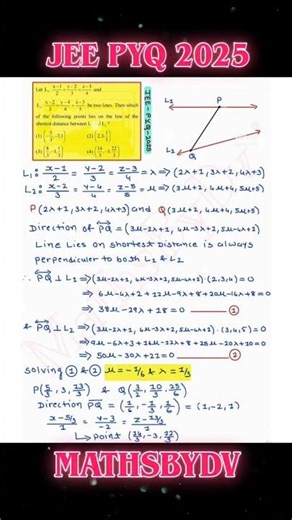 JEE PYQ 2025
Let L₁: x-1/2 = y-2/3 = z-3/4 and
L₂: x-2/3 = y-4/4 = z-5/5 be two lines. Then which
of the following points lies on the line of the
shortest distance between L₁ and L₂?
JEE-PYQ-2025
L₁
P
L₂
Q
L₁: x-1/2 = y-2/3 = z-3/4 = λ ⇒ (2λ+1, 3λ+2, 4λ+3)
L₂: x-2/3 = y-4/4 = z-5/5 = μ ⇒ (3μ+2, 4μ+4, 5μ+5)
P(2λ+1, 3λ+2, 4λ+3) and Q(3μ+2, 4μ+4, 5μ+5)
Direction of PQ = (3μ-2λ+1, 4μ-3λ+2, 5μ-4λ+2)
Line Lies on shortest Distance is always
perpendiculer to both L₁ & L₂
∴ PQ ⊥ L₁ ⇒ (3μ-2λ+1, 4μ-3λ+2, 5μ-4λ+2)·(2,3,4)=0
⇒ 6μ-4λ+2+12μ-9λ+6+20μ-16λ+8=0
⇒ 38μ-29λ+16=0 —— 1
& PQ ⊥ L₂ ⇒ (3μ-2λ+1, 4μ-3λ+2, 5μ-4λ+2)·(3,4,5)=0
⇒ 9μ-6λ+3+16μ-12λ+8+25μ-20λ+10=0
⇒ 50μ-38λ+21=0 —— 2
Solving 1 & 2 μ=-1/6 & λ=1/3
P(5/3, 3, 13/3) & Q(3/2, 10/3, 25/6)
x-5/3/1 = y-3/-2 = z-13/3/1
MATHSBYDV